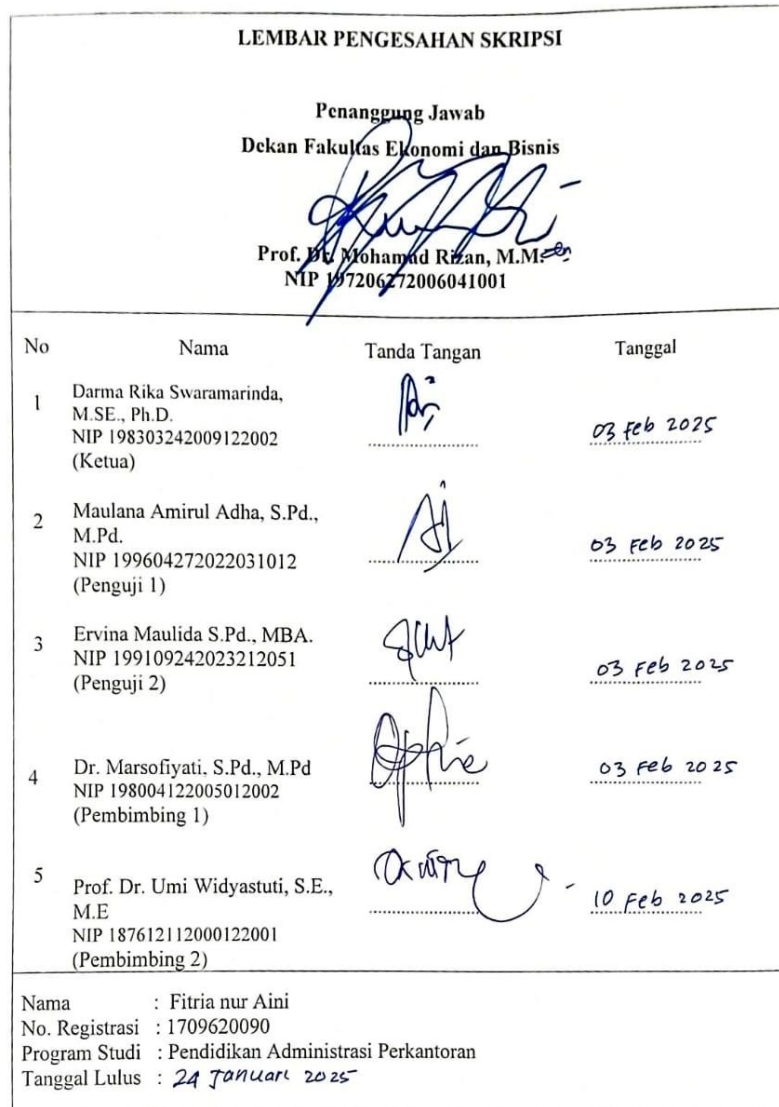 LEMBAR PENGESAHAN SKRIPSI
Penanggung Jawab
Dekan Fakultas Ekonomi dan Bisnis
Prof. Dr. Mohamad Rizan, M.M.
NIP 197206272006041001
No Nama Tanda Tangan Tanggal
1 Darma Rika Swaramarinda,
M.SE., Ph.D.
NIP 198303242009122002
(Ketua)
03 Feb 2025
2 Maulana Amirul Adha, S.Pd.,
M.Pd.
NIP 199604272022031012
(Penguji 1)
03 Feb 2025
3 Ervina Maulida S.Pd., MBA.
NIP 199109242023212051
(Penguji 2)
03 Feb 2025
4 Dr. Marsofiyati, S.Pd., M.Pd
NIP 198004122005012002
(Pembimbing 1)
03 Feb 2025
5 Prof. Dr. Umi Widyastuti, S.E.,
M.E
NIP 187612112000122001
(Pembimbing 2)
10 Feb 2025
Nama : Fitria nur Aini
No. Registrasi : 1709620090
Program Studi : Pendidikan Administrasi Perkantoran
Tanggal Lulus : 24 Januari 2025